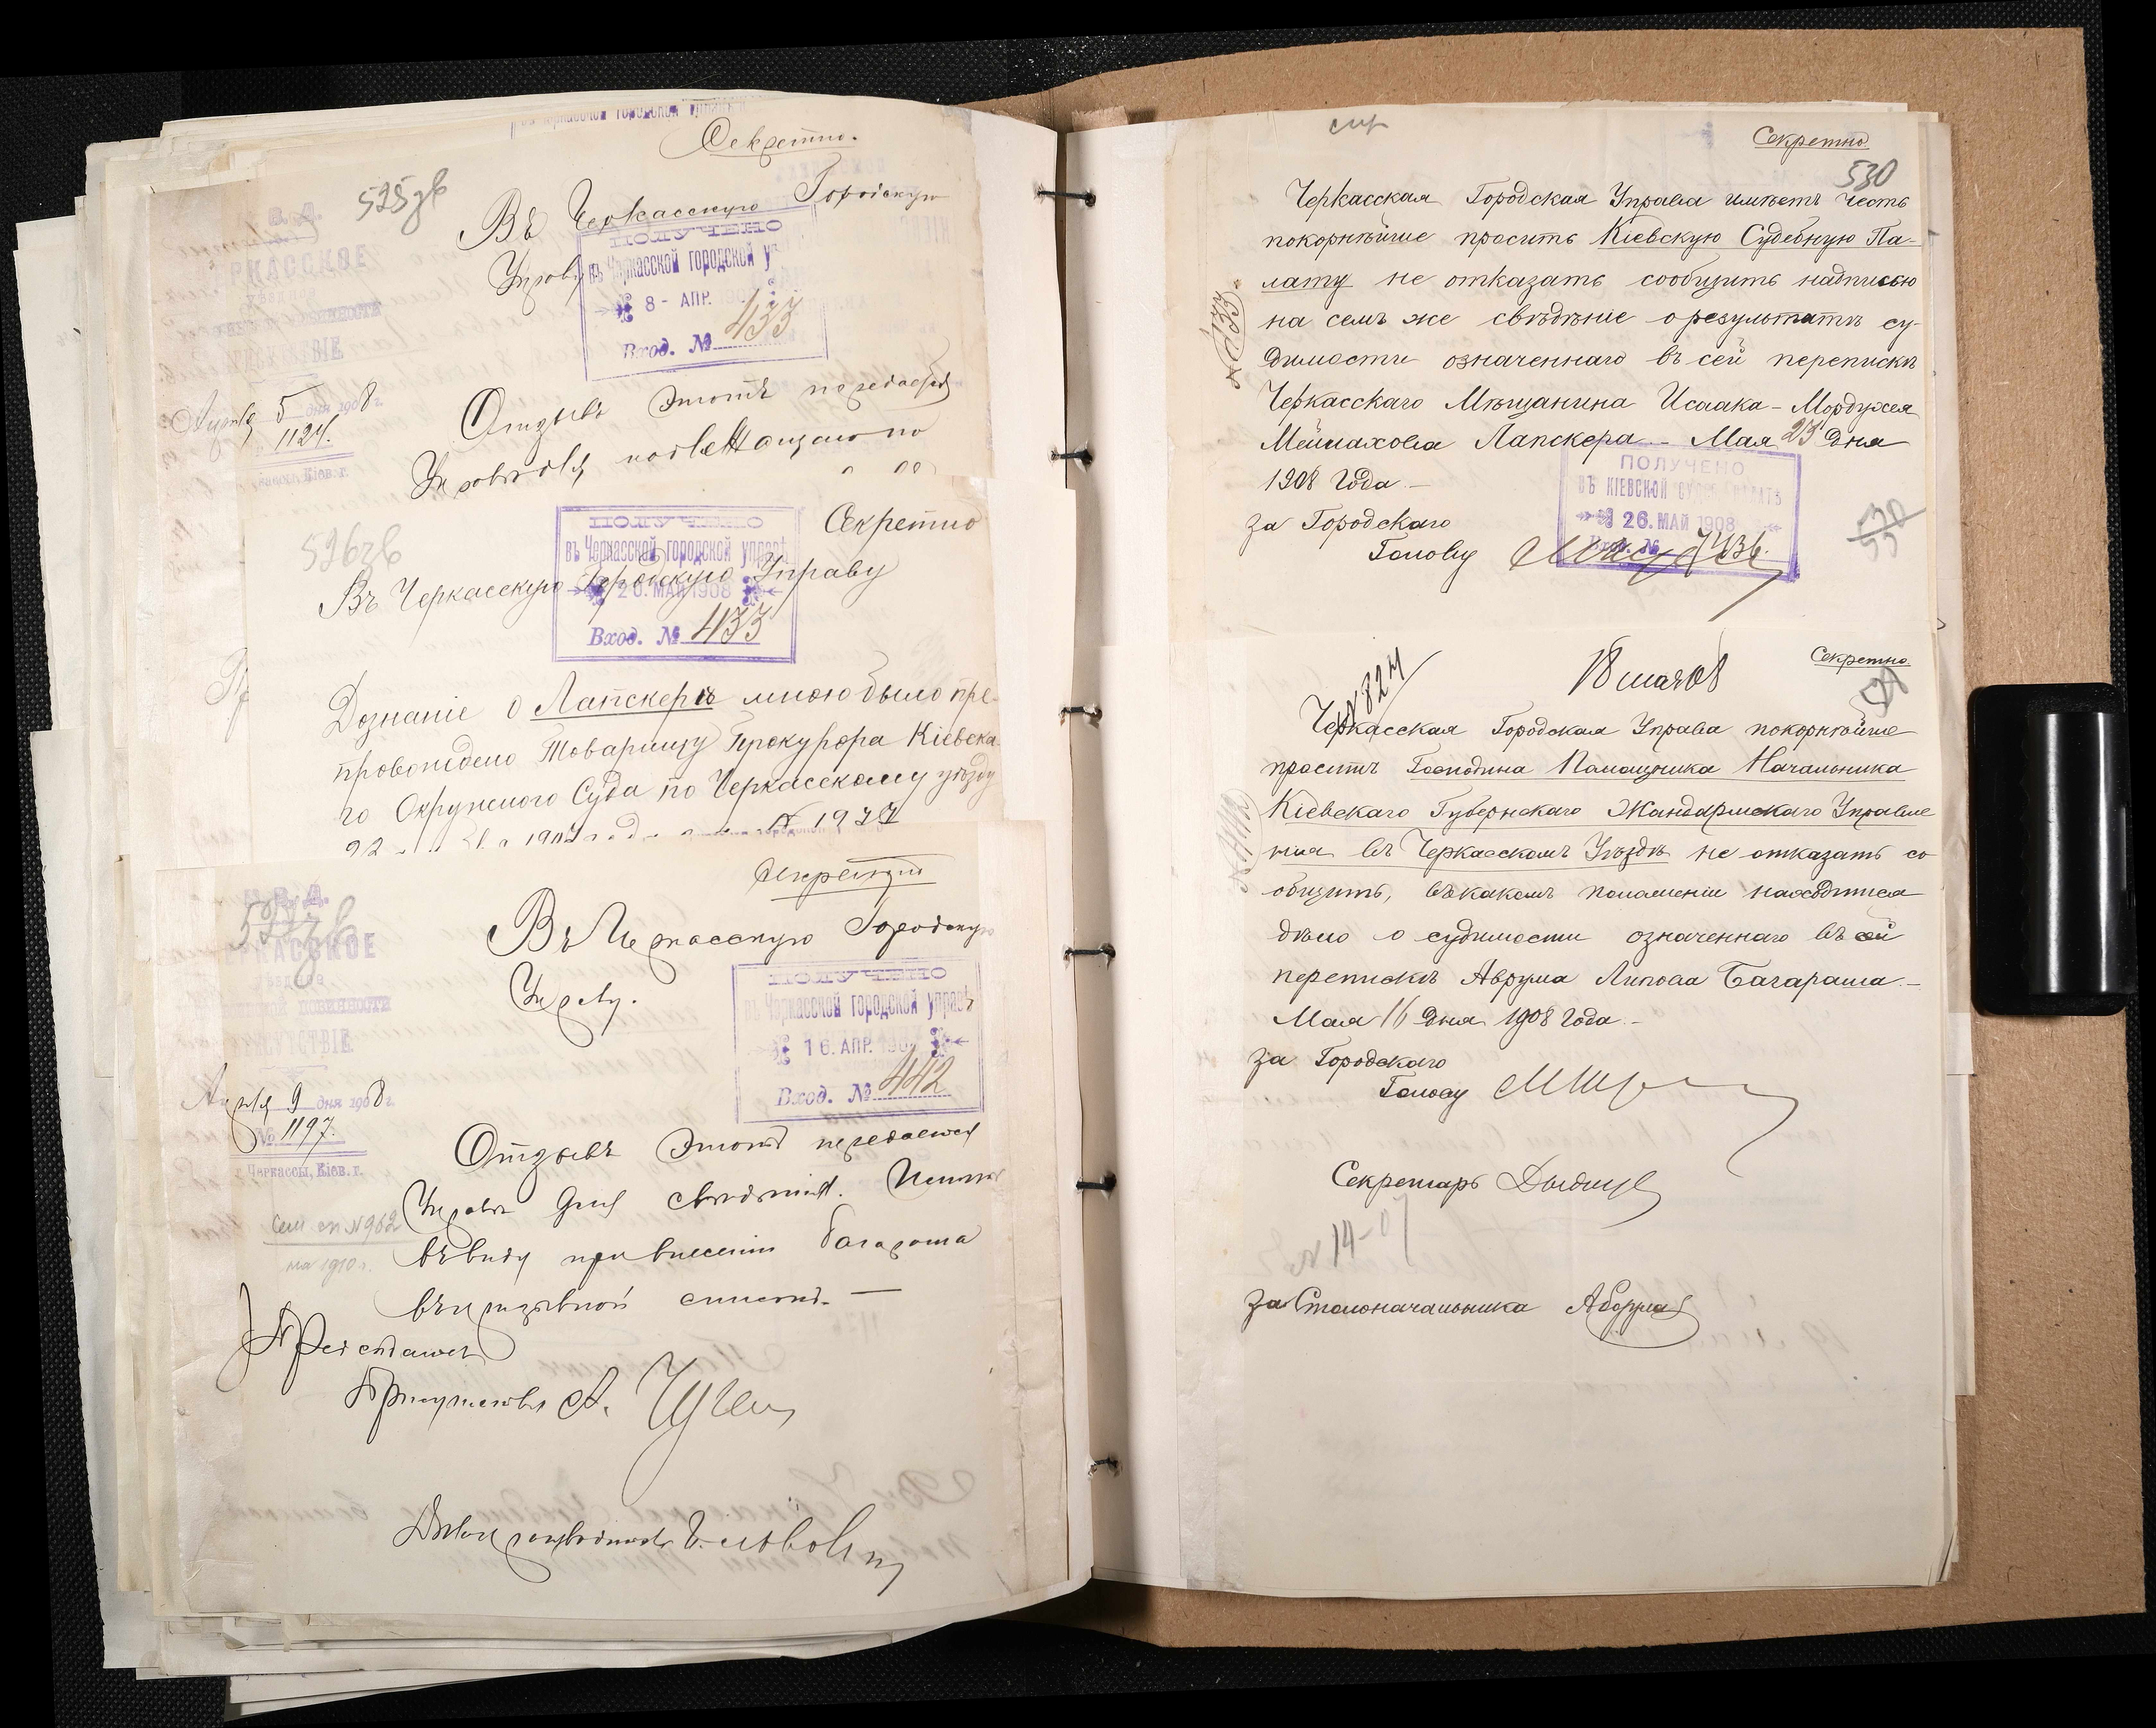 Секретно.
525зв
Въ Черкасскую Городскую
Управу
ПОЛУЧЕНО
въ Черкасской городской уп
8 - АПР. 190
Вход. № 433
Апрѣля 5 дня 1908 г.
1124.
Отзывъ этотъ передается
Управѣ для
526зв
Секретно
ПОЛУЧЕНО
въ Черкасской городской управѣ
20. МАЙ 1908
Вход. № 433
Въ Черкасскую Городскую Управу
Дознаніе о Лапскерѣ мною было пре-
провождено Товарищу Прокурора Кіевска-
го Окружного Суда по Черкасскому уѣзду
Секретно
Въ Черкасскую Городскую
Управу.
ПОЛУЧЕНО
въ Черкасской городской управѣ
16. АПР. 190
Вход. № 442
М. В. Д.
ЧЕРКАССКОЕ
уѣздное
ПРИСУТСТВІЕ
Апрѣля 9 дня 1908 г.
№ 1197.
г. Черкассы, Кіев. г.
Отзывъ этотъ передается
Управѣ для свѣдѣнія. Имѣть
въ виду при внесеніи Багараша
въ призывной списокъ. —
сем сп №962
на 1910 г.
Предсѣдатель
Присутствія А.
Дѣлопроизводитель
Секретно
530
Черкасская Городская Управа имѣетъ честь
покорнѣйше просить Кіевскую Судебную Па-
лату не отказать сообщить надписью
на семъ же свѣдѣніе о результатѣ су-
димости означеннаго въ сей перепискѣ
Черкасскаго Мѣщанина Исаака-Мордухея
Меймахова Лапскера. - Мая 23 дня
1908 года. -
№ 433
ПОЛУЧЕНО
ВЪ КІЕВСКОЙ СУДЕБ. ПАЛАТѢ
26. МАЙ 1908
Вход. №
за Городскаго
Голову
Секретно.
№ 824
18 мая 08
Черкасская Городская Управа покорнѣйше
проситъ Господина Помощника Начальника
Кіевскаго Губернскаго Жандармскаго Управле
нія въ Черкасскомъ Уѣздѣ не отказать со
общить, въ какомъ положеніи находится
дѣло о судимости означеннаго въ сей
перепискѣ Аврума Липова Багараша. -
Мая 16 дня 1908 года. -
за Городскаго
Голову
Секретарь
№ 14-07
за Столоначальника